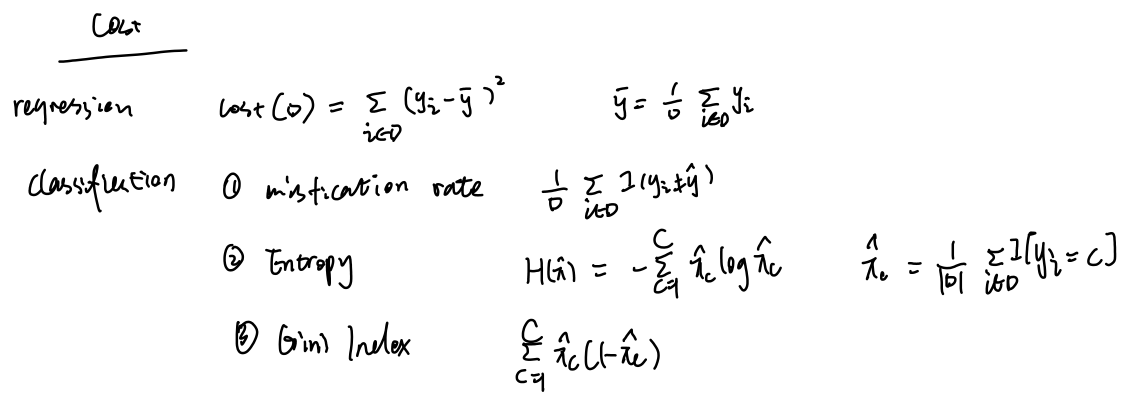 Cost
regression cost(D) = Σ_{i∈D} (y_i - ȳ)² ȳ = 1/D Σ_{i∈D} y_i
classification ① misfication rate 1/D Σ_{i∈D} I(y_i ≠ ŷ)
② Entropy H(π̂) = -Σ_{c=1}^{C} π̂_c log π̂_c π̂_c = 1/|D| Σ_{i∈D} I[y_i = c]
③ Gini Index Σ_{c=1}^{C} π̂_c (1-π̂_c)